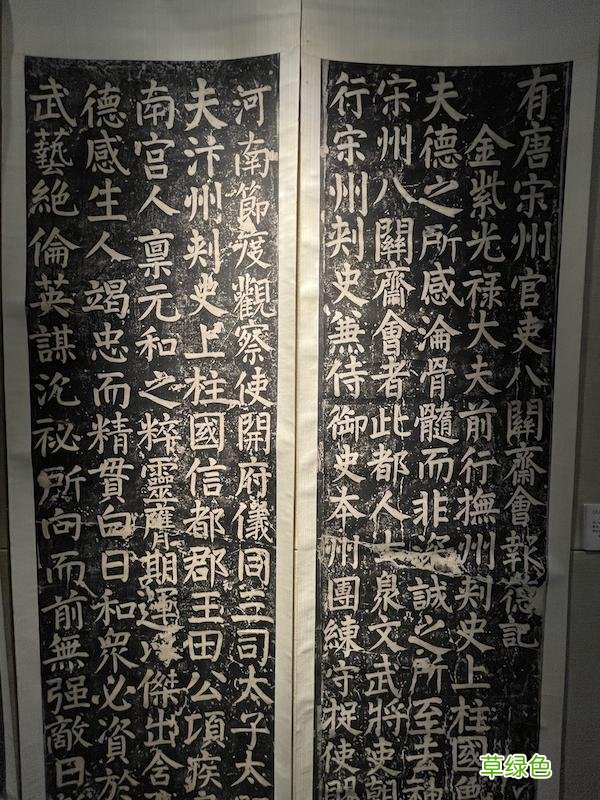 有唐宋州官吏八關齋會報德記
金紫光祿大夫前行撫州刾史上柱國魯
夫德之所感淪骨髓而非深誠之所至去神
宋州八關齋會者此都人士泉文武將吏朝
行宋州刾史兼侍御史本州團練守捉使
河南節度觀察使開府儀同三司太子太
夫汴州刾史上柱國信都郡王田公頃疾
南宮人稟元和之粹靈膺期運以傑出含
德感生人竭忠而精貫白日和衆必資於
武藝絕倫英謀沉祕所向而前無强敵日
草绿色